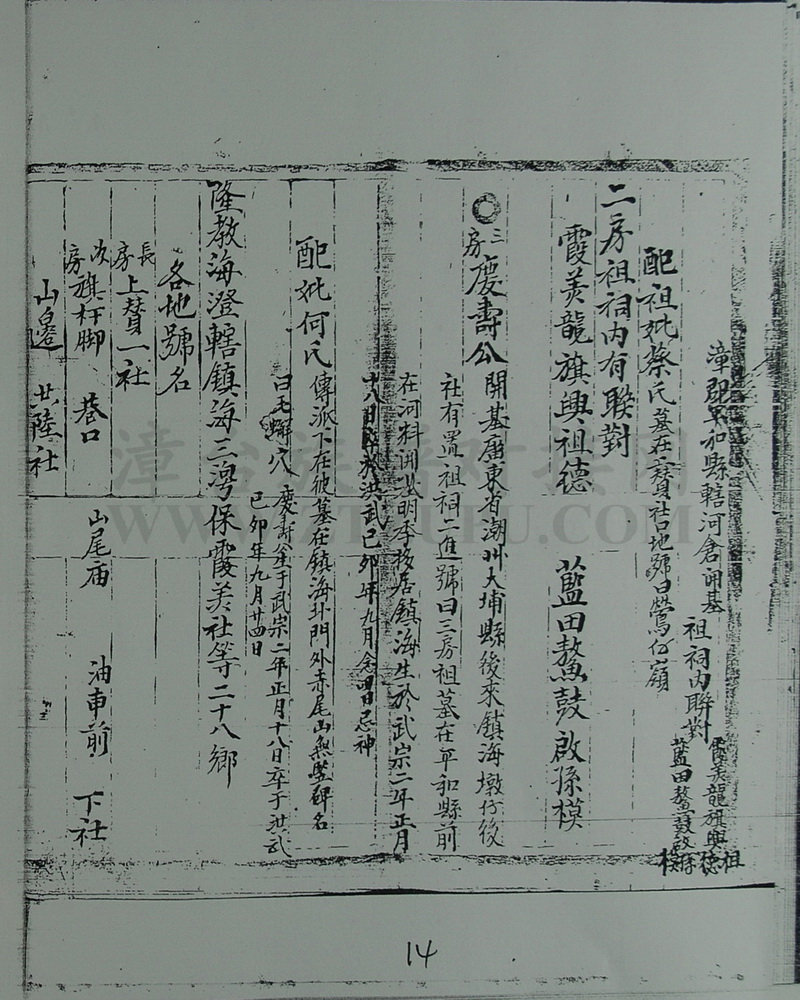 漳郡平和縣轄河倉開基
祖祠內聯對
霞美龍旗興祖德
藍田鰲鼓啟孫模
配祖妣蔡氏 墓在 社地號曰鶯仔嶺
二房祖祠內有聯對
霞美龍旗興祖德 藍田鰲鼓啟孫模
三房 慶壽公 開基廣東省潮州大埔縣後來鎮海墩仔後
社有置祖祠二進號曰三房祖墓在平和縣前
在河料開基明季移居鎮海生於武宗二年正月
十八日 洪武己卯年九月念四日忌神
配妣何氏 傳派下在彼墓在鎮海外門外赤尾山無豎碑名
曰毛蟹穴 慶壽公生于武宗二年正月十八日卒于洪武
己卯年九月廿四日
隆教海澄轄鎮海三灣保霞美社等二十八鄉
各地號名
長房 上贊一社
次房 旗杆脚 巷口 山尾庙 油車前 下社
山邊 共陸社
14
WWW.ZTZUPU.COM